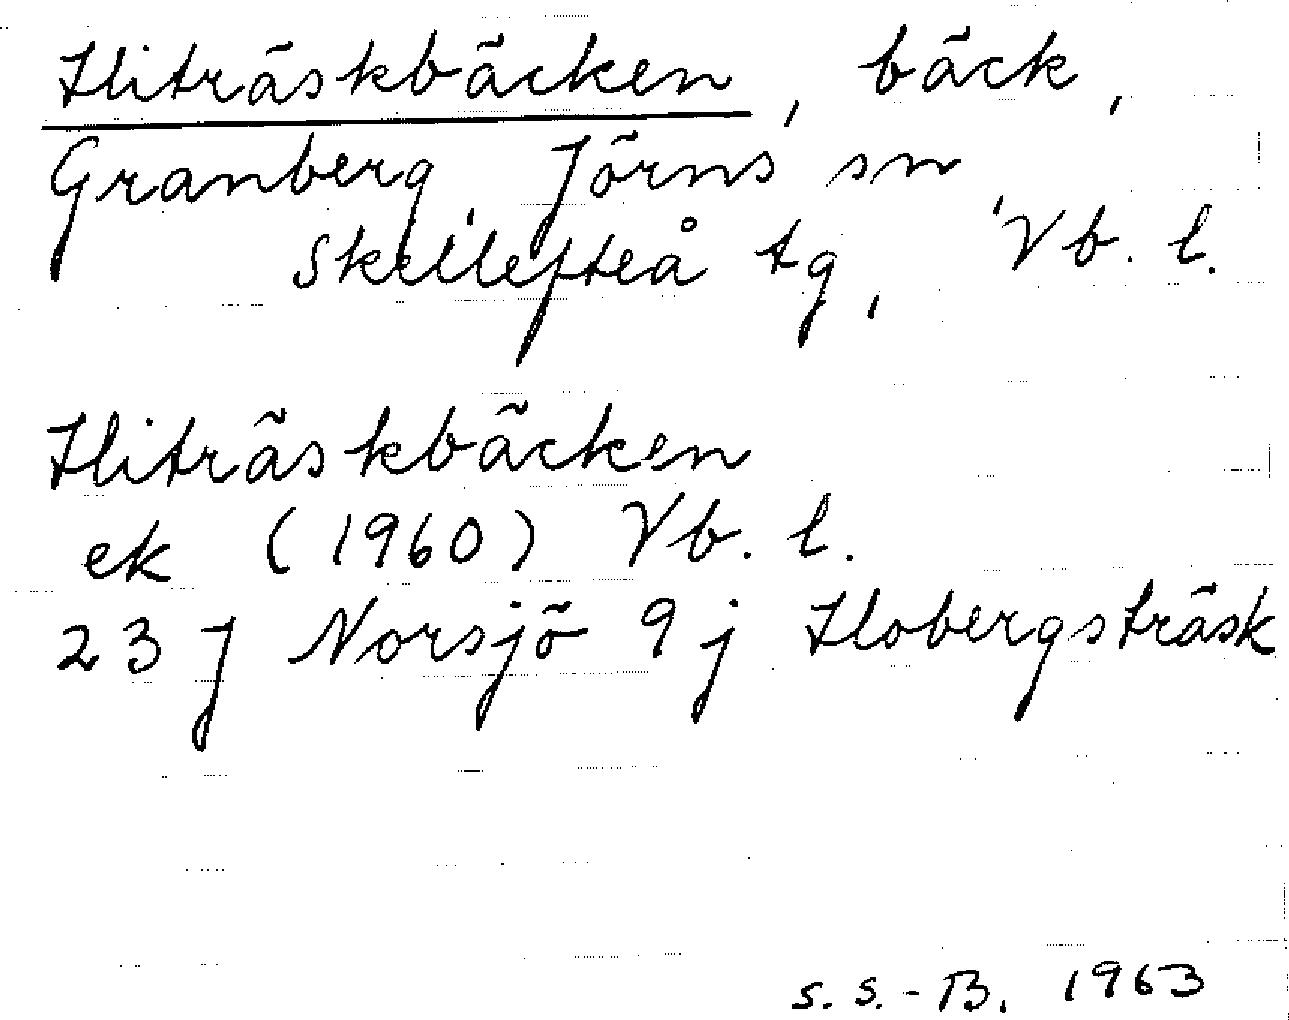 Hiträskbäcken, bäck,
Granberg, Jörns sn,
Skellefteå tg, Vb. l.
Hiträskbäcken
ek (1960) Vb. l.
23 J Norsjö 9 j Hobergsträsk
S. S.-B. 1963